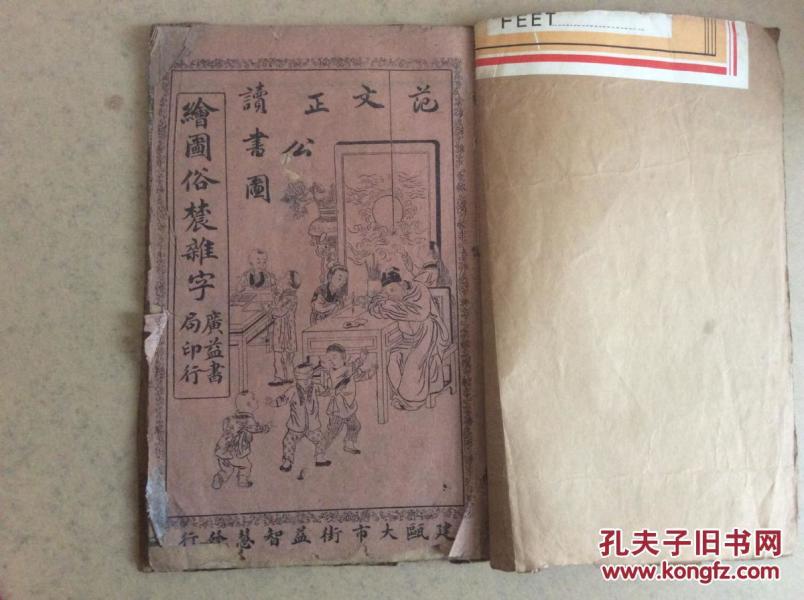 范文正公
讀書圖
繪圖俗農雜字
廣益書局印行
建甌大市街益智慧發行
FEET
孔夫子旧书网
www.kongfz.com